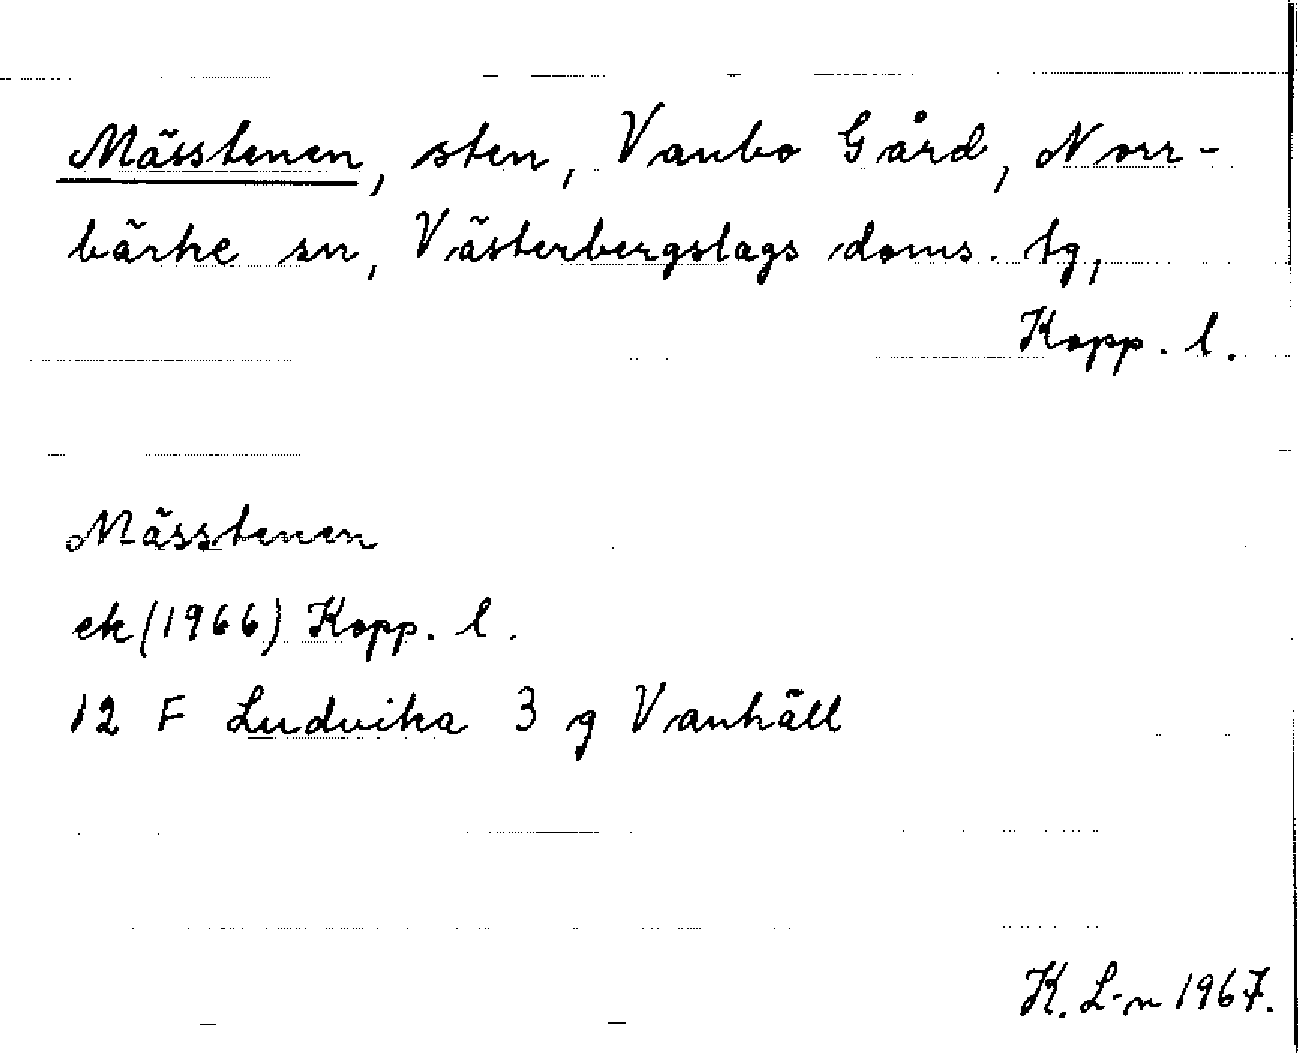 Mässtenen, sten, Vanbo Gård, Norr-
bärke sn, Västerbergslags doms. tg,
Kopp. l.
Mässtenen
ek (1966) Kopp. l.
12 F Ludvika 3 g Vanhäll
K. L-n 1967.